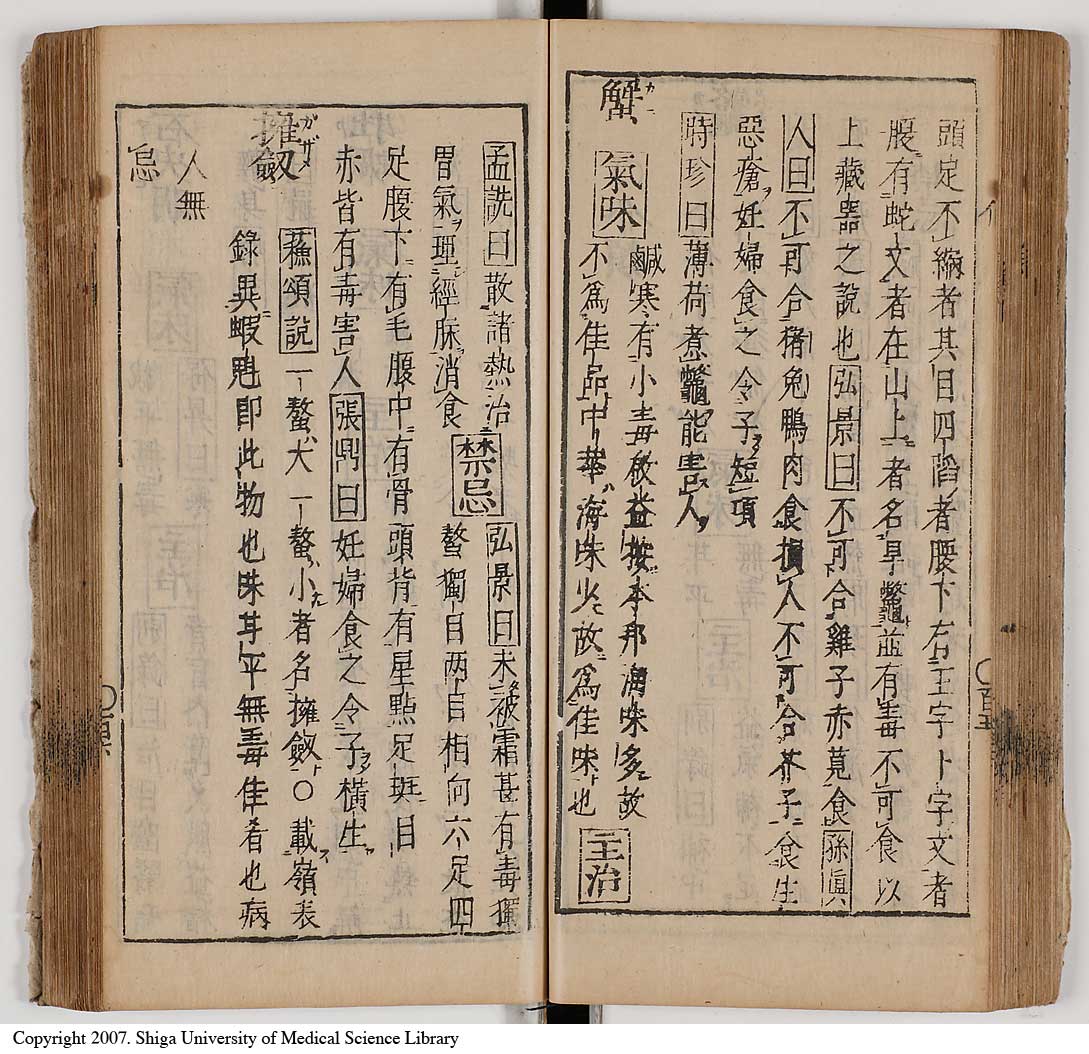 頭足不縮者其目四陷者腰下右王字卜字文者
腹有蛇文者在山上者名旱鼈並有毒不可食以
上藏器之說也弘景曰不可合雞子赤莧食孫眞
人曰不可合猪兔鴨肉食損人不可合芥子食生
惡瘡妊婦食之令子短項
時珍曰薄荷煮鼈能害人
蟹 氣味 鹹寒有小毒 本邦海味多故
不爲佳品中華海味少故爲佳味也 主治
孟詵曰散諸熱治
胃氣理經脉消食 禁忌 弘景曰未被霜甚有毒獨
螯獨目两目相向六足四
足腹下有毛腹中有骨頭背有星點足斑目
赤皆有毒害人張鼎曰妊婦食之令子橫生
擁劔 蘓頌說一螯大一螯小者名擁劔○載嶺表
錄異蝦魁即此物也味甘平無毒佳肴也病
人無
忌
Copyright 2007. Shiga University of Medical Science Library